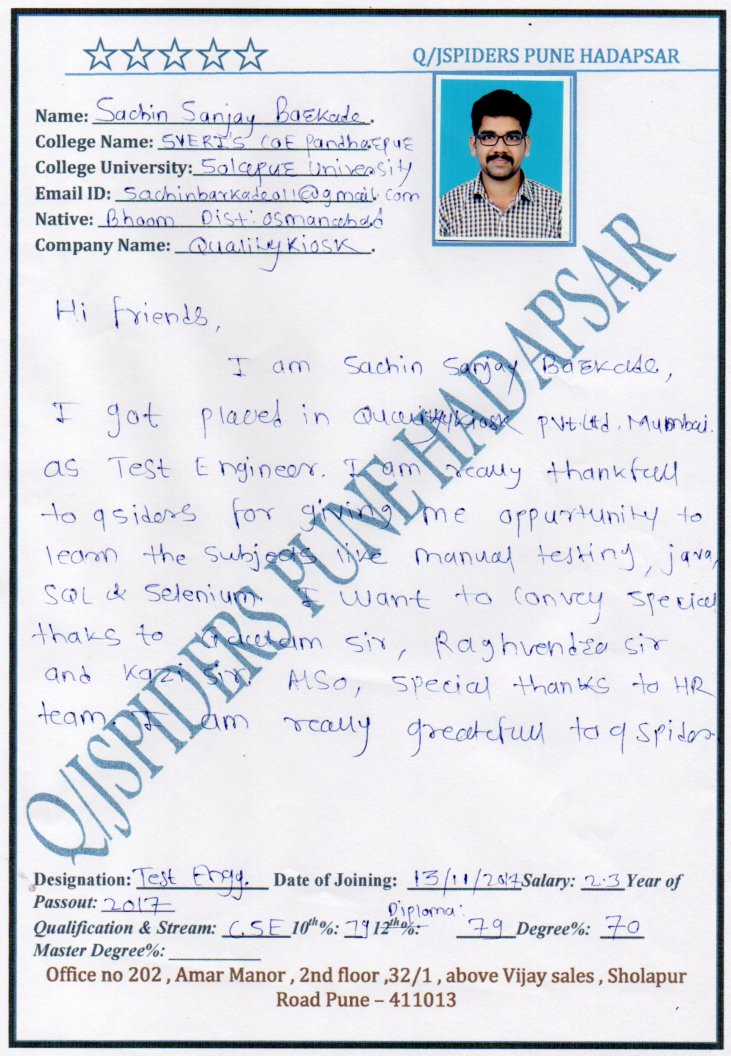 Q/JSPIDERS PUNE HADAPSAR
Name: Sachin Sanjay Barkade.
College Name: SVERI'S COE Pandharpur
College University: Solapur University
Email ID: Sachinbarkade011@gmail.com
Native: Bhoom Dist: Osmanabad
Company Name: QualityKiosk.
Hi friends,
I am Sachin Sanjay Barkade,
I got placed in QualityKiosk Pvt.Ltd. Mumbai.
as Test Engineer. I am really thankfull
to qsiders for giving me oppurtunity to
learn the subjects live manual testing, java,
SQL & Selenium. I want to convey special
thaks to Gautam sir, Raghvendra sir
and Kazi sir. Also, special thanks to HR
team. I am really greatefull to q spider.
Q/JSPIDERS PUNE HADAPSAR
Designation: Test Engg. Date of Joining: 13/11/2017 Salary: 2.3 Year of
Passout: 2017
Diploma:
Qualification & Stream: CSE 10th%: 79 12th%:- 79 Degree%: 70
Master Degree%:
Office no 202 , Amar Manor , 2nd floor ,32/1 , above Vijay sales , Sholapur
Road Pune – 411013